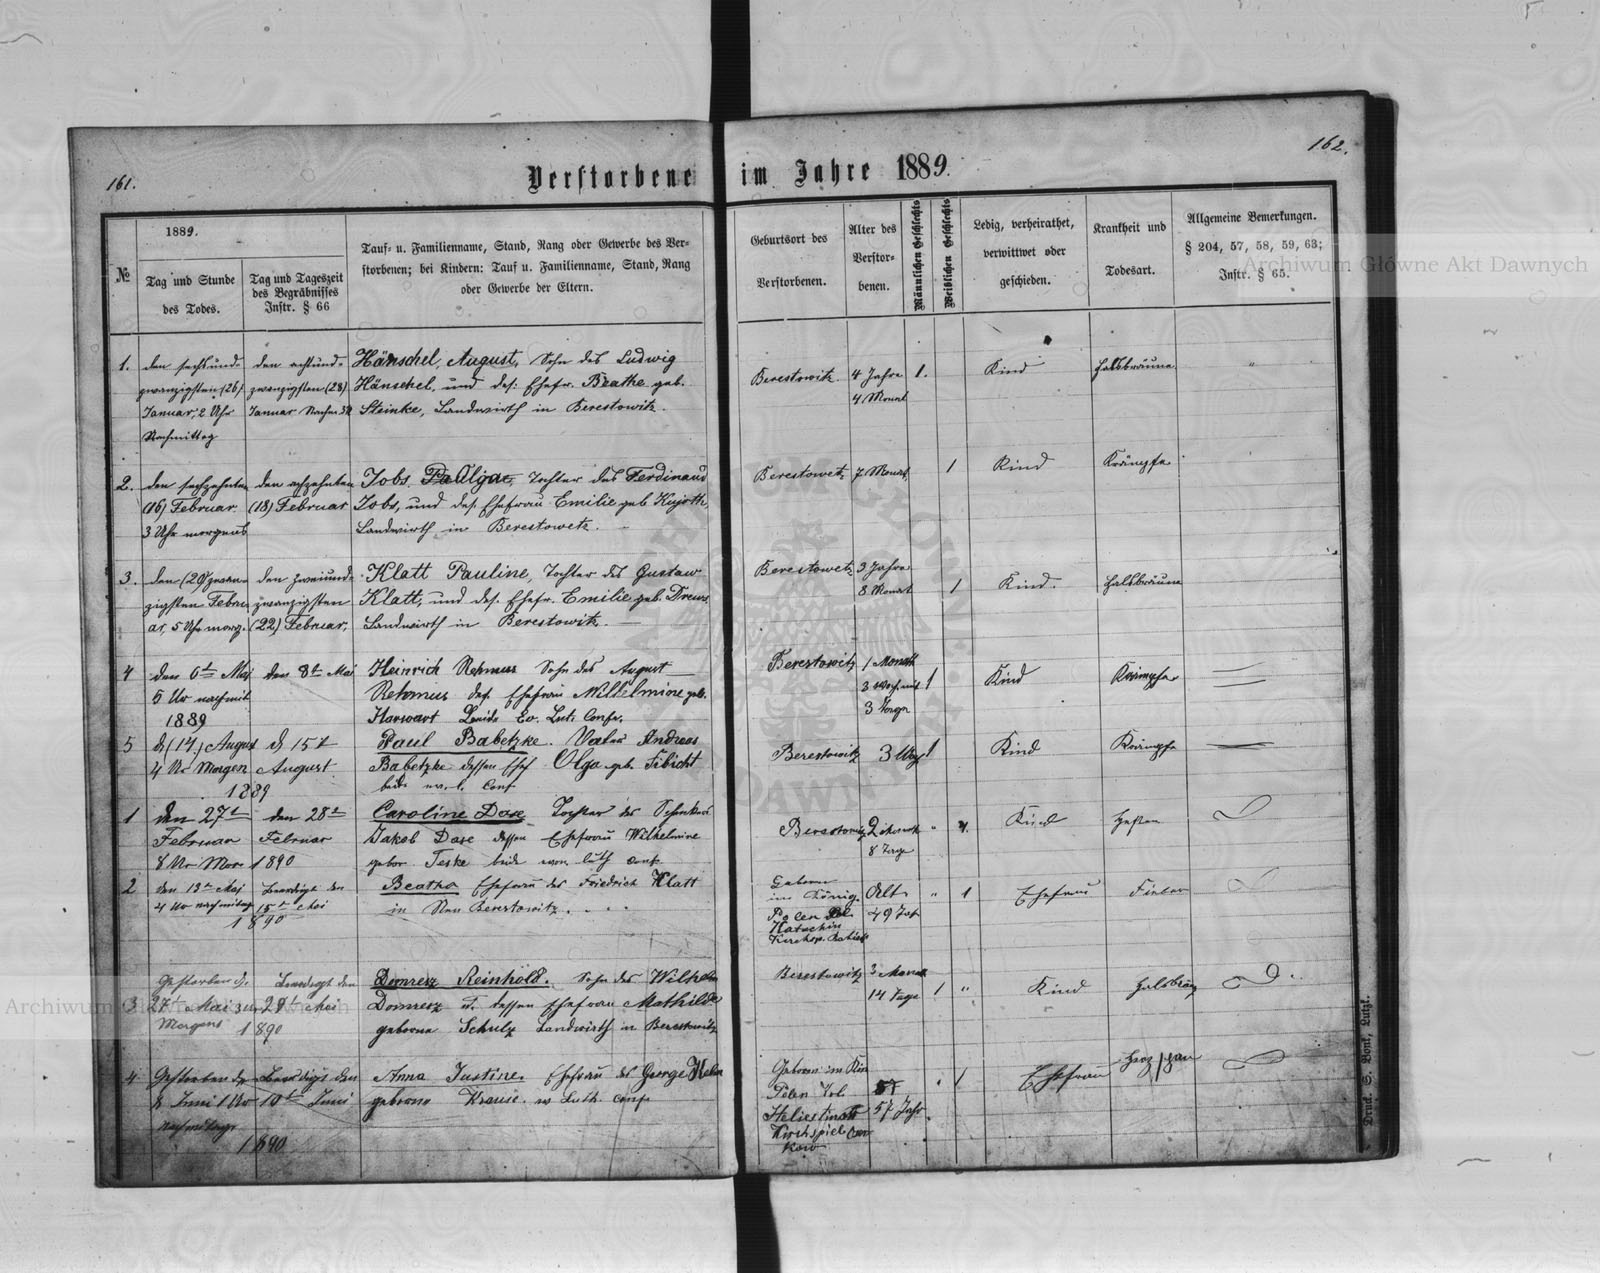 161.
Verstorbene im Jahre 1889.
162.
№
1889.
Tag und Stunde
des Todes.
Tag und Tageszeit
des Begräbnisses
Instr. § 66
Tauf- u. Familienname, Stand, Rang oder Gewerbe des Ver-
storbenen; bei Kindern: Tauf u. Familienname, Stand, Rang
oder Gewerbe der Eltern.
Geburtsort des
Verstorbenen.
Alter des
Verstor-
benen.
Männlichen Geschlechts
Weiblichen Geschlechts
Ledig, verheirathet,
verwittwet oder
geschieden.
Krankheit und
Todesart.
Allgemeine Bemerkungen.
§ 204, 57, 58, 59, 63;
Instr. § 65.
1.
den sechsund-
zwanzigsten (26)
Januar, 2 Uhr
Nachmittag
den achtund-
zwanzigsten (28)
Januar Nachm
Hänschel, August, Sohn des Ludwig
Hänschel, und des. Ehefr. Beathe geb.
Steinke, Landwirth in Berestowitz.
Berestowitz
4 Jahre
4 Monat
1.
Kind
Halsbräune
2.
den sechzehnten
(16) Februar
3 Uhr morgens
den achzehnten
(18) Februar
Jobs, Olga, Tochter des Ferdinand
Jobs, und des. Ehefrau Emilie geb. Kujath,
Landwirth in Berestowetz.
Berestowetz
7 Monat
1
Kind
Krämpfe
3.
den (20) zwan-
zigsten Febru
ar, 5 Uhr morg.
den zweiund-
zwanzigsten
(22) Februar,
Klatt Pauline, Tochter des Gustaw
Klatt, und des. Ehefr. Emilie geb. Drews,
Landwirth in Berestowitz.
Berestowetz
3 Jahre
8 Monat
1
Kind.
Halsbräune
4
den 6t Mai
5 Ur nachmit
1889
den 8t Mai
Heinrich Rehmus Sohn des August
Rehmus des. Ehefrau Wilhelmine geb.
Harwart Beide Ev. Lut. Confr.
Berestowitz
1 Monath
3 Woch mit
3 Tage
1
Kind
Krämpfe
5
d (14) August
4 Ur Morgen
1889
d 15t
August
Paul Babetzke. Vater Andreas
Babetzke dessen Ehef Olga geb. Fibicht
beide ev. l. Conf
Berestowitz
3 Wo
1
Kind
Krämpfe
1
den 27t
Februar
8 Ur Mor
den 28t
Februar
1890
Caroline Dase Tochter des
Jakob Dase dessen Ehefrau Wilhelmine
gebor Teske beide evan. luth Conf
Berestowitz
2 Monat
8 Tage
Kind
Husten
2
den 13t Mai
4 Ur nachmitag
Beerdigt den
15t Mai
1890
Beatha Ehefrau des Friedrich Klatt
in Neu Berestowitz.
Geboren
im König.
Polen
Kirchsp.
Alt
49 Jah
1
Ehefrau
Fieber
3
Gestorben d.
27t Mai 3 Ur
Morgens
Beerdigt den
29t Mai
1890
Domresz Reinhold. Sohn des Wilhelm
Domresz u. dessen Ehefrau Mathilde
geborne Schulz Landwirth in Berestowitz
Berestowitz
3 Monat
14 Tage
1
Kind
Halsbräu
4
Gestorben den
8 Juni 1 Ur
nachmitags
Beerdigt den
10t Juni
1890
Anna Justine. Ehefrau des George
geborne Krause. ev Luth. Conf
Geboren im Kön
Polen
Kirchspiel
57 Jahr
1
Ehefrau
Druck. S. Bonk, Lutzk.
Archiwum Główne Akt Dawnych
Archiwum Główne Akt Dawnych